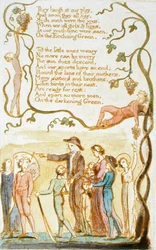 They laugh at our play,
And soon they all say,
Such such were the joys,
When we all girls & boys,
In our youth time were seen,
On the Ecchoing Green.
Till the little ones weary
No more can be merry
The sun does descend,
And our sports have an end:
Round the laps of their mothers,
Many sisters and brothers,
Like birds in their nest,
Are ready for rest;
And sport no more seen,
On the darkening Green.